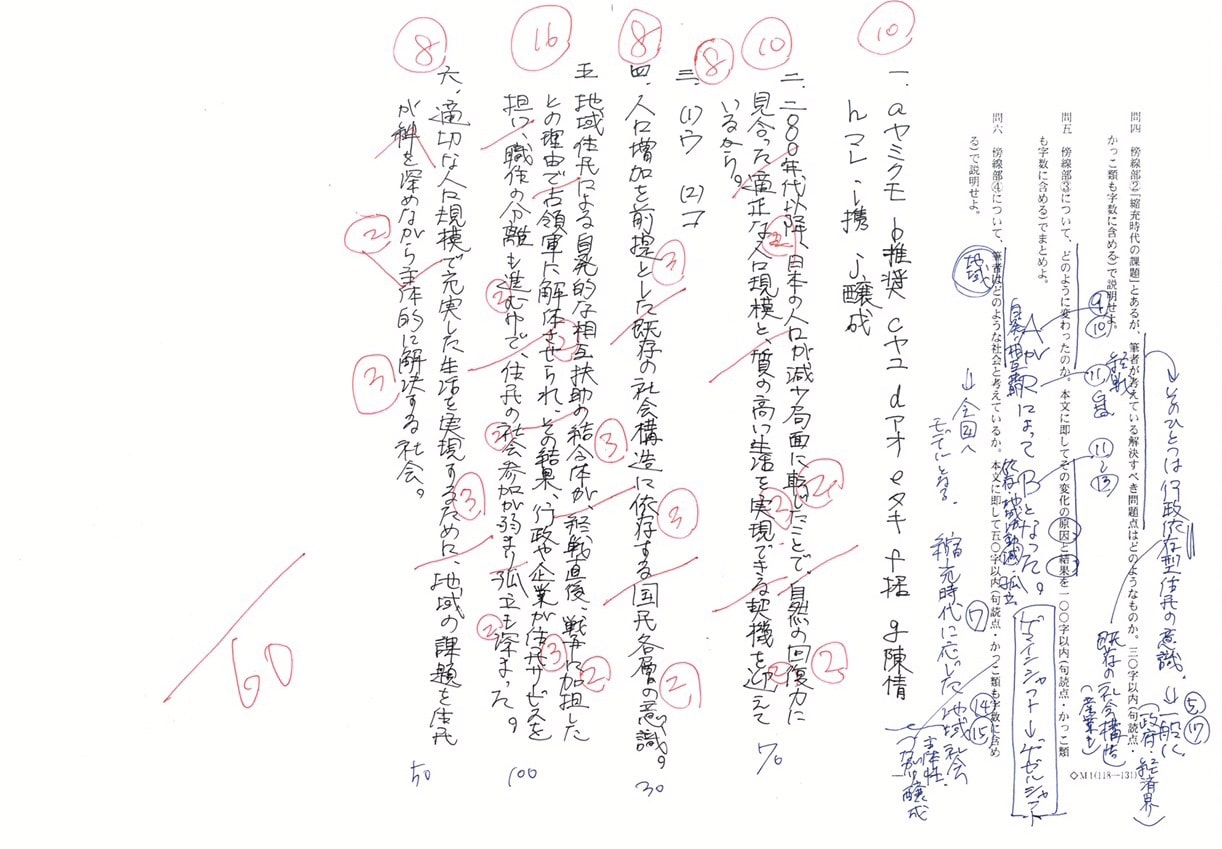 問四 傍線部②「縮充時代の課題」とあるが、筆者が考えている解決すべき問題点はどのようなものか。三〇字以内(句読点・
かっこ類も字数に含める)で説明せよ。
問五 傍線部③について、どのように変わったのか。本文に即してその変化の原因と結果を一〇〇字以内(句読点・かっこ類
も字数に含める)でまとめよ。
問六 傍線部④について、筆者はどのような社会と考えているか。本文に即して五〇字以内(句読点・かっこ類も字数に含め
る)で説明せよ。
◇M1(118—131)
→そのひとつは行政依存型住民の意識。
↓一般に
⑤
⑰
(政府・経済界)
既存の社会構造
(産業も)
⑨
⑩
終戦
⑪
⑪
〜
⑬
AがRによってBとなった。
自発・相互扶助
依存・地域活動減・孤立
ゲマインシャフト→ゲゼルシャフト
地域
↓全国へ
モデルとなる。
縮充時代に応じた地域社会
⑦
⑭
⑮
主体性・
つながり醸成
10
一、aヤミクモ b推奨 cヤユ dアオ eタキ f拒 g陳情
hマレ i携 j醸成
10
二、二〇〇〇年代以降、日本の人口が減少局面に転じたことで、自然の回復力に
見合った適正な人口規模と、質の高い生活を実現できる契機を迎えて
いるから。
70
2
2
2
2
8
三、(1)ウ (2)コ
8
四、人口増加を前提とした既存の社会構造に依存する国民各層の意識。
30
3
3
2
16
五 地域住民による自発的な相互扶助の結合体が、終戦直後、戦争に加担した
との理由で占領軍に解体させられ、その結果、行政や企業が住民サービスを
担い、職住の分離も進む中で、住民の社会参加が弱まり孤立も深まった。
100
3
2
2
3
2
2
2
8
六、適切な人口規模で充実した生活を実現するために、地域の課題を住民
が絆を深めながら主体的に解決する社会。
50
3
2
3
60